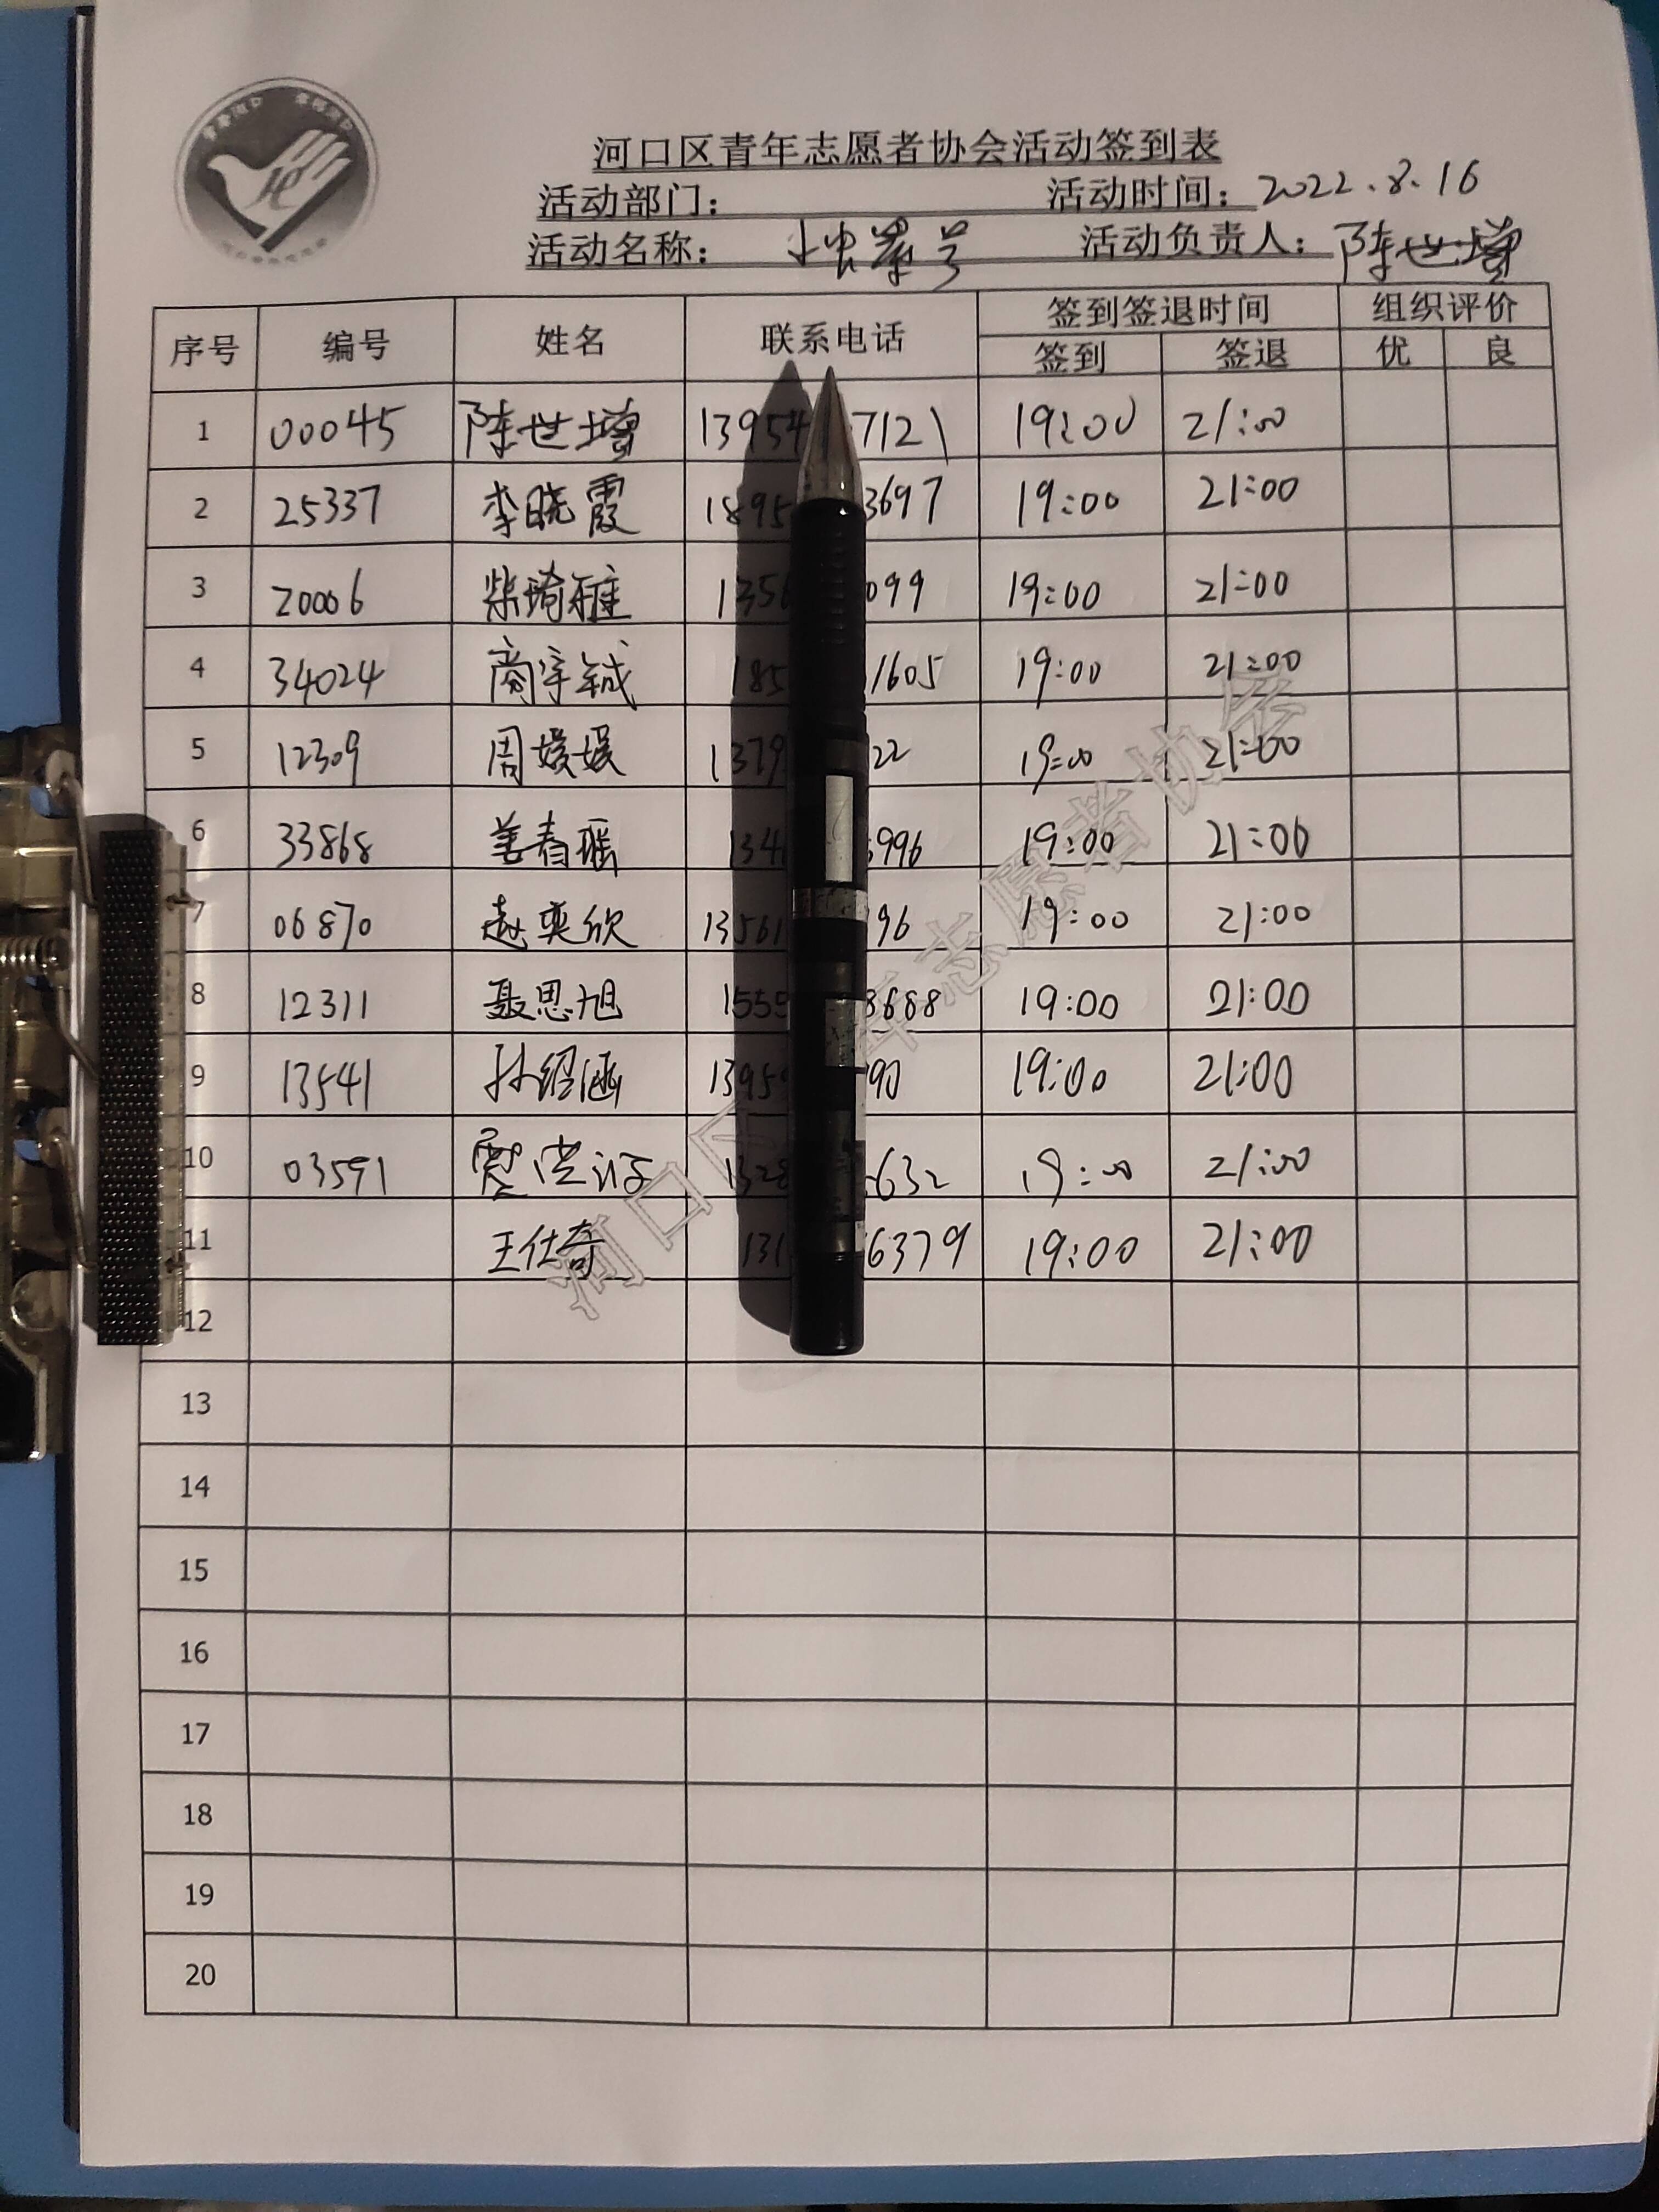 河口区青年志愿者协会活动签到表
活动部门： 活动时间：2022.8.16
活动名称： 活动负责人：陈世增
序号 编号 姓名 联系电话 签到签退时间 组织评价
签到 签退 优 良
1 00045 陈世增 13954 7121 19:00 21:00
2 25337 李晓霞 1895 3697 19:00 21:00
3 20006 柴琦雅 1356 099 19:00 21:00
4 34024 商宇铖 185 1605 19:00 21:00
5 12309 周媛媛 1379 22 19:00 21:00
6 33868 姜春瑶 134 996 19:00 21:00
7 06870 赵奕欣 13561 96 19:00 21:00
8 12311 聂思旭 1555 8688 19:00 21:00
9 13541 孙绍涵 1395 90 19:00 21:00
10 03591 1328 632 19:00 21:00
11 王仕奇 131 6379 19:00 21:00
12
13
14
15
16
17
18
19
20
河口区 年志愿者协会